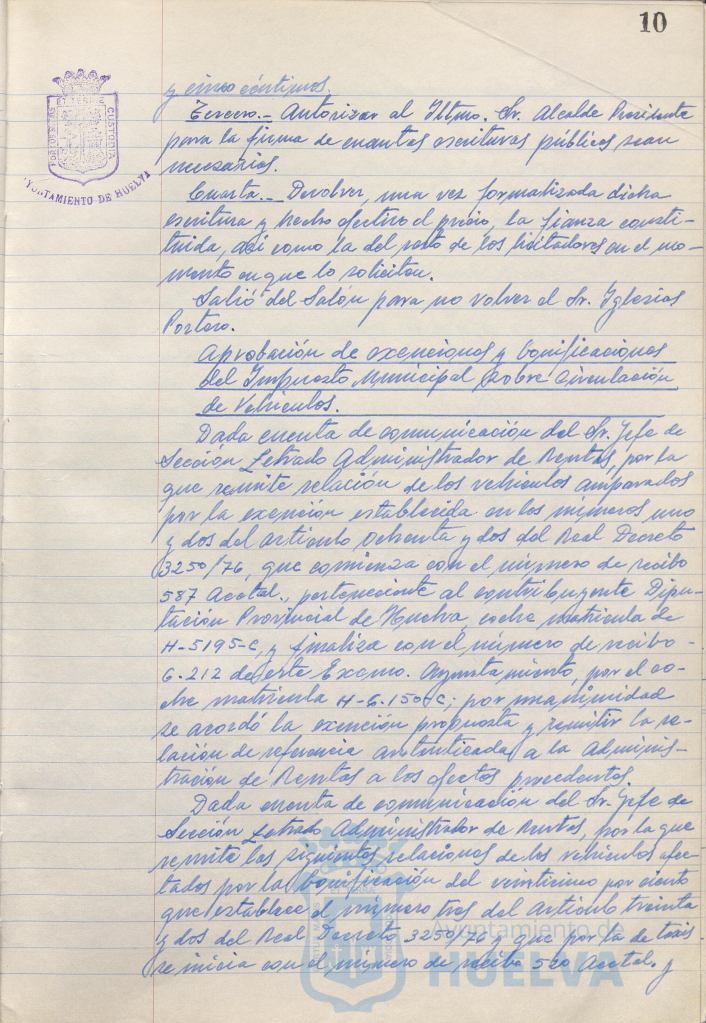 10
y cinco céntimos.
Tercero.- Autorizar al Iltmo. Sr. Alcalde Presidente
para la firma de cuantas escrituras públicas sean
necesarias.
Cuarta.- Devolver, una vez formalizada dicha
escritura y hecho efectivo el precio, la fianza consti-
tuida, así como la del resto de los licitadores en el mo-
mento en que lo soliciten.
Salió del Salón para no volver el Sr. Iglesias
Portero.
Aprobación de exenciones y bonificaciones
del Impuesto Municipal sobre Circulación
de Vehículos.
Dada cuenta de comunicación del Sr. Jefe de
Sección Letrado Administrador de Rentas, por la
que remite relación de los vehículos amparados
por la exención establecida en los números uno
y dos del artículo ochenta y dos del Real Decreto
3250/76, que comienza con el número de recibo
587 Acetal., perteneciente al contribuyente Dipu-
tación Provincial de Huelva, coche matrícula de
H-5195-C, y finaliza con el número de recibo
6.212 de este Excmo. Ayuntamiento, por el co-
che matrícula H-6.150-C; por unanimidad
se acordó la exención propuesta y remitir la re-
lación de referencia autenticada a la Adminis-
tración de Rentas a los efectos procedentes.
Dada cuenta de comunicación del Sr. Jefe de
Sección Letrado Administrador de Rentas, por la que
remite las siguientes relaciones de los vehículos afec-
tados por la bonificación del veinticinco por ciento
que establece el número tres del artículo treinta
y dos del Real Decreto 3250/76 y que por la de taxis
se inicia con el número de recibo 520 Acetal. y
AYUNTAMIENTO DE HUELVA
Ayuntamiento de
HUELVA